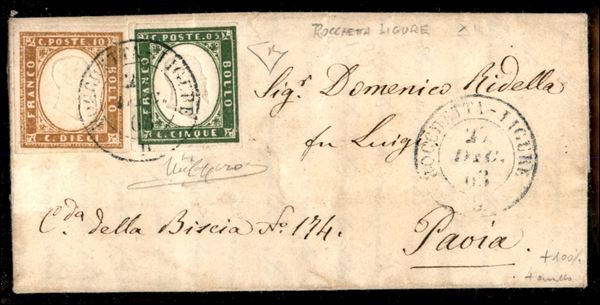 ROCCHETTA LIGURE
C. POSTE. 10
FRANCO
BOLLO
C. DIECI
C. POSTE. 05
FRANCO
BOLLO
C. CINQUE
Sigr Domenico Ridella
fu Luigi
ROCCHETTA-LIGURE
27
DIC.
63
Cda della Biscia No. 174.
Pavia.
+100%